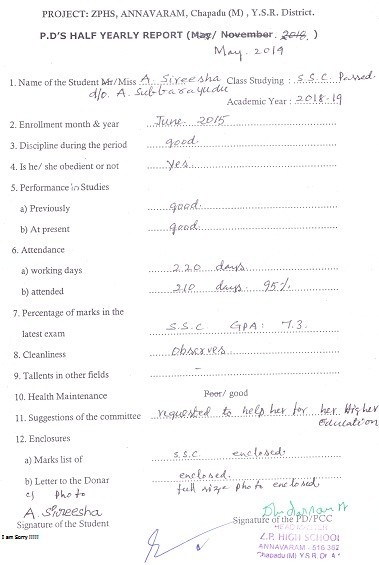 PROJECT: ZPHS, ANNAVARAM, Chapadu (M) , Y.S.R. District.
P.D'S HALF YEARLY REPORT (May/ November. 2018. )
May. 2019
1. Name of the Student Mr/Miss A. Sireesha Class Studying : S.S.C. Passed.
d/o. A. Subbarayudu
Academic Year : 2018-19
2. Enrollment month & year June- 2015
3. Discipline during the period good.
4. Is he/ she obedient or not Yes
5. Performance in Studies
a) Previously good.
b) At present good.
6. Attendance
a) working days 220 days
b) attended 210 days. 95%
7. Percentage of marks in the
latest exam S.S.C GPA: 7.3.
8. Cleanliness Observes
9. Tallents in other fields -
10. Health Maintenance Poor/ good
11. Suggestions of the committee requested to help her for her Higher
Education
12. Enclosures
a) Marks list of S.S.C. enclosed
b) Letter to the Donar enclosed
c) Photo full size photo enclosed
A. Sireesha
Signature of the Student
Signature of the PD/PCC
Z.P. HIGH SCHOOL
ANNAVARAM - 516 362
Chapadu (M) Y.S.R. Dt
I am Sorry !!!!!